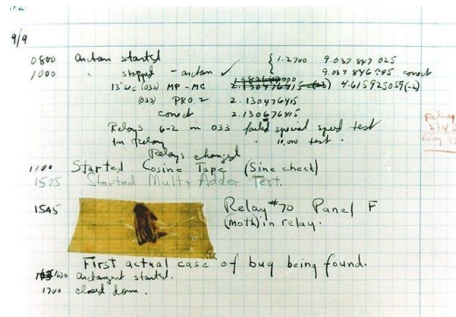 9/9
0800 Antan started
1000 " stopped - antan ✓ { 1.2700 9.037 847 025
9.037 846 995 correct
13"uc (032) MP - MC 2.130476415 (-3) 4.615925059(-2)
(033) PRO 2 2.130476415
correct 2.130676415
Relays 6-2 in 033 failed special speed test
in relay " 10,000 test.
Relays changed
1100 Started Cosine Tape (Sine check)
1525 Started Mult + Adder Test.
1545 Relay #70 Panel F
(moth) in relay.
First actual case of bug being found.
1630 antangent started.
1700 closed down.